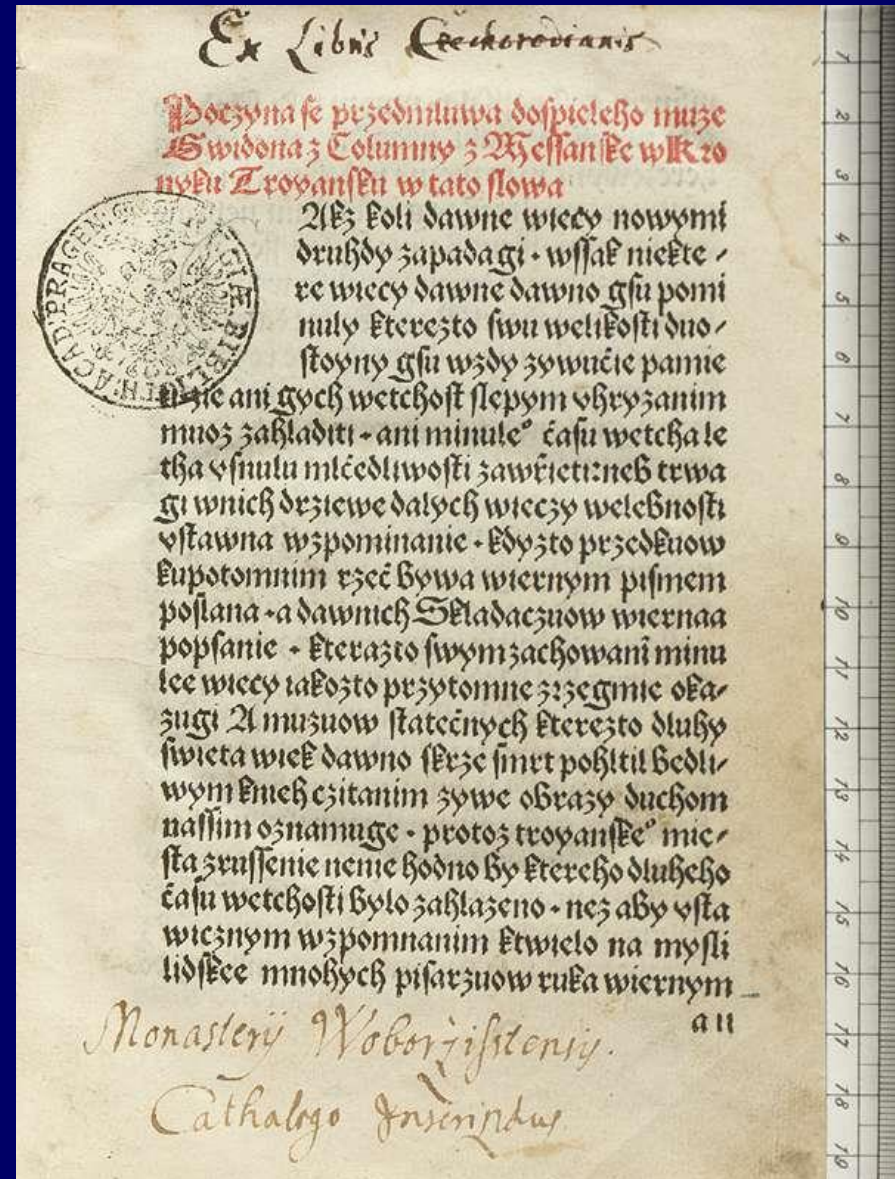 Ex Libris
Poczyna se przedmluwa dospieleho muze
Gwidona z Columny z Messanske w Kro
nyku Troyansku w tato slowa
Akz koli dawne wiecy nowymi
druhdy zapadagi · wssak niekte /
re wiecy dawne dawno gsu pomi
nuly kterezto swu welikosti duo /
stoyny gsu wzdy zywućie pamie
ani gych wetchost slepym vhryzanim
muoz zahladiti · ani minuleº ćasu wetcha le
tha vsnulu mlćedliwosti zawřieti: neb trwa
gi wnich drziewe dalych wieczy welebnosti
vstawna wzpominanie · kdyzto przedkuow
kupotomnim rzeć bywa wiernym pismem
poslana · a dawnich Skladaczuow wiernaa
popsanie · kterazto swym zachowanī minu
lee wiecy iakozto przytomne zrzegmie oka /
zugi A muzuow statećnych kterezto dluhy
swieta wiek dawno skrze smrt pohltil bedli /
wym knieh czitanim zywe obrazy duchom
nassim oznamuge · protoz troyanskeº mie /
sta zrussenie nenie hodno by ktereho dluheho
ćasu wetchosti bylo zahlazeno · nez aby vsta
wicznym wzpomnanim ktwielo na mysli
lidskee mnohych pisarzuow ruka wiernym
a ii
Monasterij Woborzisstensis.
Cathalogo Inscriptus
ACAD: PRAGEN: BIBLIOTH:
1
2
3
4
5
6
7
8
9
10
11
12
13
14
15
16
17
18
19